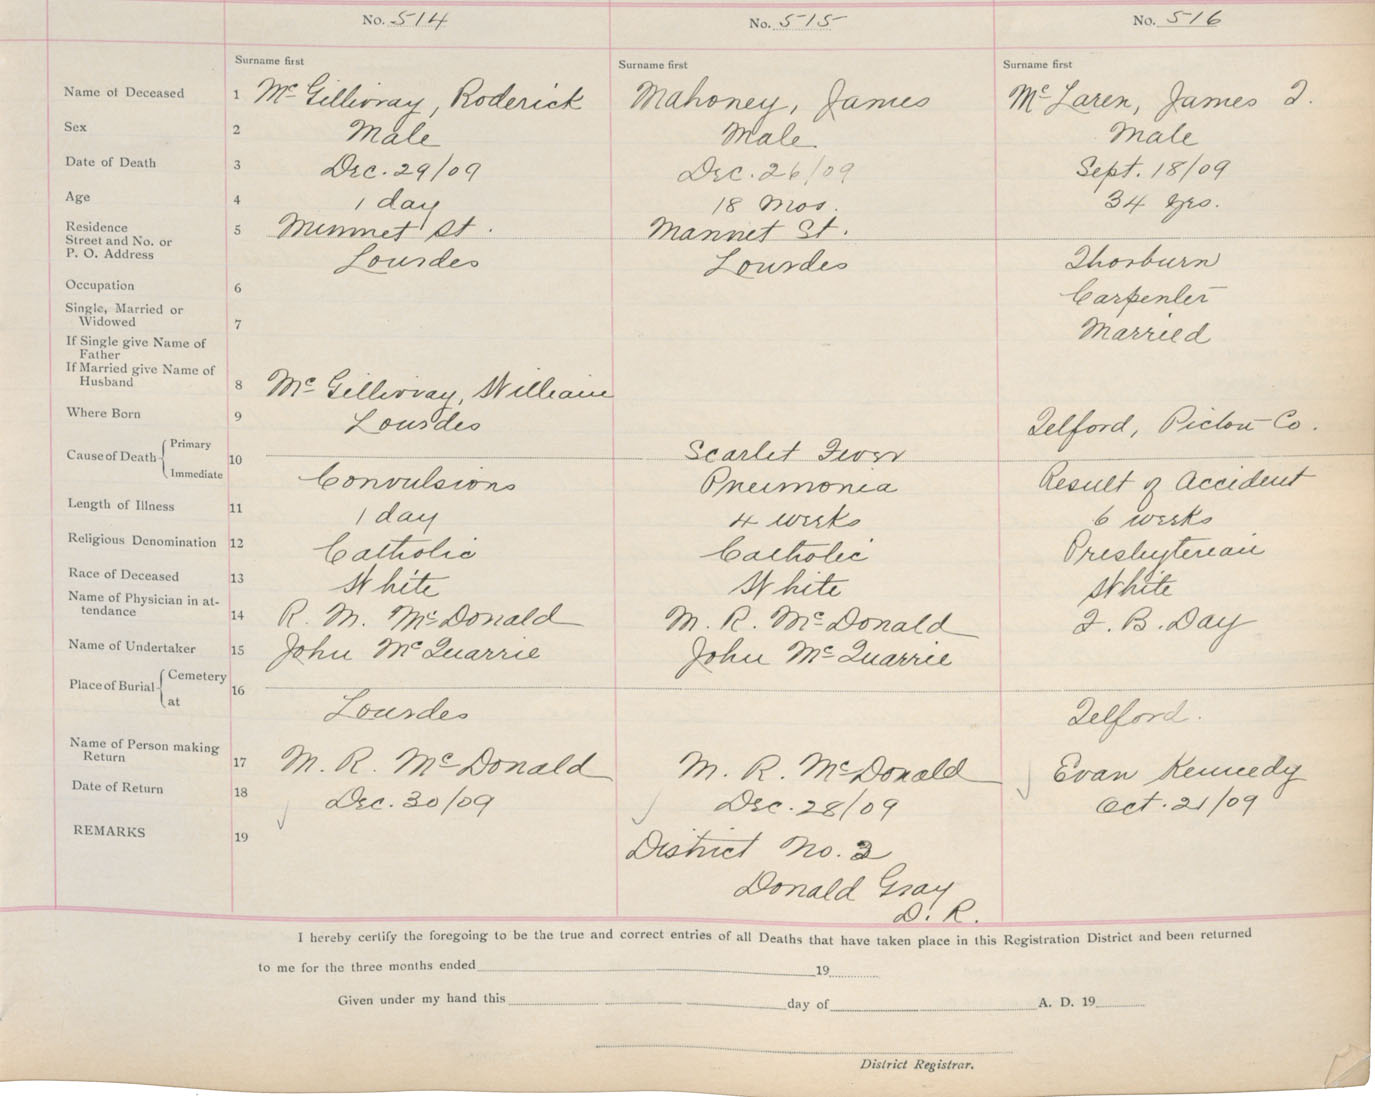 No. 514 No. 515 No. 516
Surname first Surname first Surname first
Name of Deceased 1 McGillivray, Roderick Mahoney, James McLaren, James F.
Sex 2 Male Male Male
Date of Death 3 Dec. 29/09 Dec. 26/09 Sept. 18/09
Age 4 1 day 18 Mos. 34 yrs.
Residence 5 Mimmet St. Mannet St.
Street and No. or
P. O. Address Lourdes Lourdes Thorburn
Occupation 6 Carpenter
Single, Married or
Widowed 7 Married
If Single give Name of
Father
If Married give Name of
Husband 8 McGillivray, William
Where Born 9 Lourdes Telford, Pictou Co.
Cause of Death Primary 10 Scarlet Fever
Immediate Convulsions Pneumonia Result of Accident
Length of Illness 11 1 day 4 weeks 6 weeks
Religious Denomination 12 Catholic Catholic Presbyterian
Race of Deceased 13 White White White
Name of Physician in at-
tendance 14 R. M. McDonald M. R. McDonald F. B. Day
Name of Undertaker 15 John McQuarrie John McQuarrie
Place of Burial Cemetery 16
at Lourdes Telford.
Name of Person making
Return 17 M. R. McDonald M. R. McDonald Evan Kennedy
Date of Return 18 Dec. 30/09 Dec. 28/09 Oct. 21/09
REMARKS 19 District No. 2
Donald Gray
D. R.
I hereby certify the foregoing to be the true and correct entries of all Deaths that have taken place in this Registration District and been returned
to me for the three months ended 19
Given under my hand this day of A. D. 19
District Registrar.